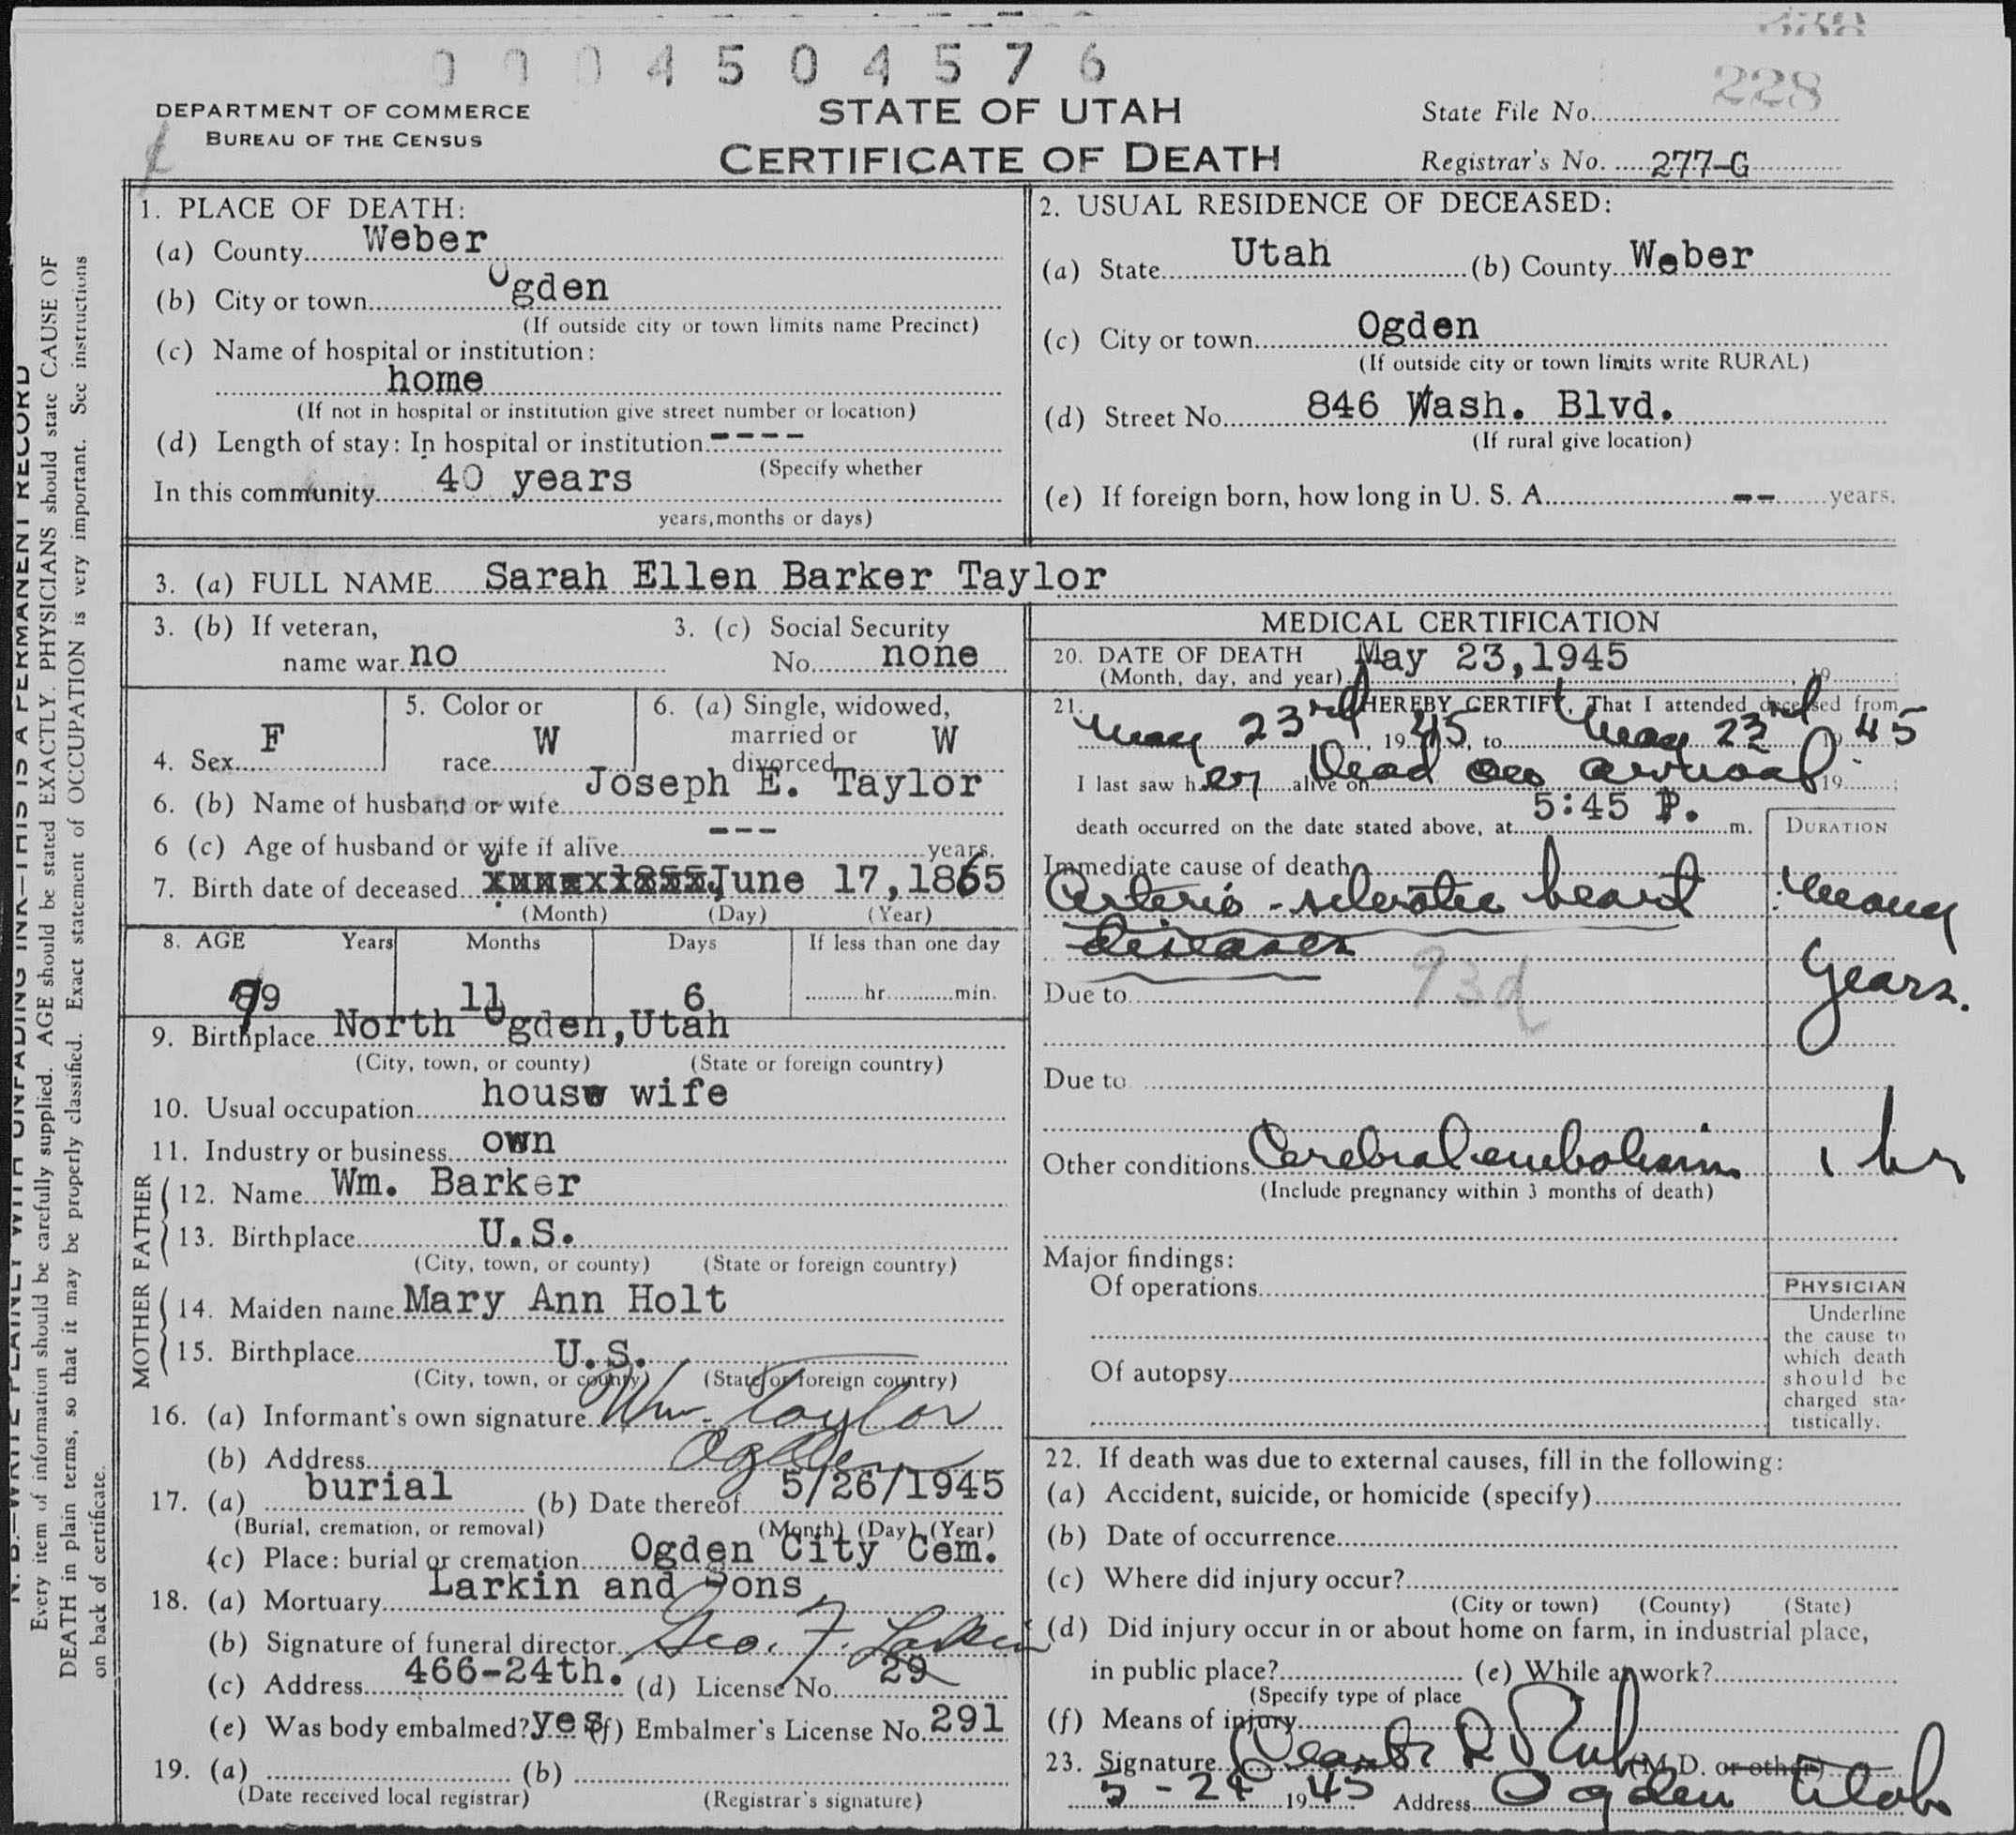 0004504576
228
DEPARTMENT OF COMMERCE
BUREAU OF THE CENSUS
STATE OF UTAH
CERTIFICATE OF DEATH
State File No.
Registrar's No. 277-G
1. PLACE OF DEATH:
(a) County Weber
(b) City or town Ogden
(If outside city or town limits name Precinct)
(c) Name of hospital or institution:
home
(If not in hospital or institution give street number or location)
(d) Length of stay: In hospital or institution ----
(Specify whether
In this community 40 years
years, months or days)
2. USUAL RESIDENCE OF DECEASED:
(a) State Utah (b) County Weber
(c) City or town Ogden
(If outside city or town limits write RURAL)
(d) Street No. 846 Wash. Blvd.
(If rural give location)
(e) If foreign born, how long in U. S. A. -- years.
3. (a) FULL NAME Sarah Ellen Barker Taylor
3. (b) If veteran,
name war no
3. (c) Social Security
No. none
4. Sex F
5. Color or
race W
6. (a) Single, widowed,
married or
divorced W
6. (b) Name of husband or wife Joseph E. Taylor
6 (c) Age of husband or wife if alive --- years.
7. Birth date of deceased June 17, 1865
(Month) (Day) (Year)
8. AGE Years Months Days If less than one day
79 11 6 hr. min.
9. Birthplace North Ogden, Utah
(City, town, or county) (State or foreign country)
10. Usual occupation house wife
11. Industry or business own
FATHER
12. Name Wm. Barker
13. Birthplace U.S.
(City, town, or county) (State or foreign country)
MOTHER
14. Maiden name Mary Ann Holt
15. Birthplace U.S.
(City, town, or county) (State or foreign country)
16. (a) Informant's own signature Wm. Taylor
(b) Address Ogden
17. (a) burial (b) Date thereof 5/26/1945
(Burial, cremation, or removal) (Month) (Day) (Year)
(c) Place: burial or cremation Ogden City Cem.
18. (a) Mortuary Larkin and Sons
(b) Signature of funeral director Geo. F. Larkin
(c) Address 466-24th. (d) License No. 29
(e) Was body embalmed? yes (f) Embalmer's License No. 291
19. (a) (b)
(Date received local registrar) (Registrar's signature)
MEDICAL CERTIFICATION
20. DATE OF DEATH May 23, 1945
(Month, day, and year) , 19
21. I HEREBY CERTIFY, That I attended deceased from
May 23rd, 1945, to May 23rd 1945
I last saw her alive on Dead on arrival 19 ;
death occurred on the date stated above, at 5:45 P. m.
DURATION
Immediate cause of death
Arterio-sclerotic heart
disease
many
years.
93d
Due to
Due to
Other conditions Cerebral embolism 1 hr
(Include pregnancy within 3 months of death)
Major findings:
Of operations
Of autopsy
PHYSICIAN
Underline
the cause to
which death
should be
charged sta-
tistically.
22. If death was due to external causes, fill in the following:
(a) Accident, suicide, or homicide (specify)
(b) Date of occurrence
(c) Where did injury occur?
(City or town) (County) (State)
(d) Did injury occur in or about home on farm, in industrial place,
in public place? (e) While at work?
(Specify type of place
(f) Means of injury
23. Signature (M.D. or other)
5-24 1945 Address Ogden Utah
N. B.—WRITE PLAINLY WITH UNFADING INK—THIS IS A PERMANENT RECORD
Every item of information should be carefully supplied. AGE should be stated EXACTLY. PHYSICIANS should state CAUSE OF
DEATH in plain terms, so that it may be properly classified. Exact statement of OCCUPATION is very important. See instructions
on back of certificate.